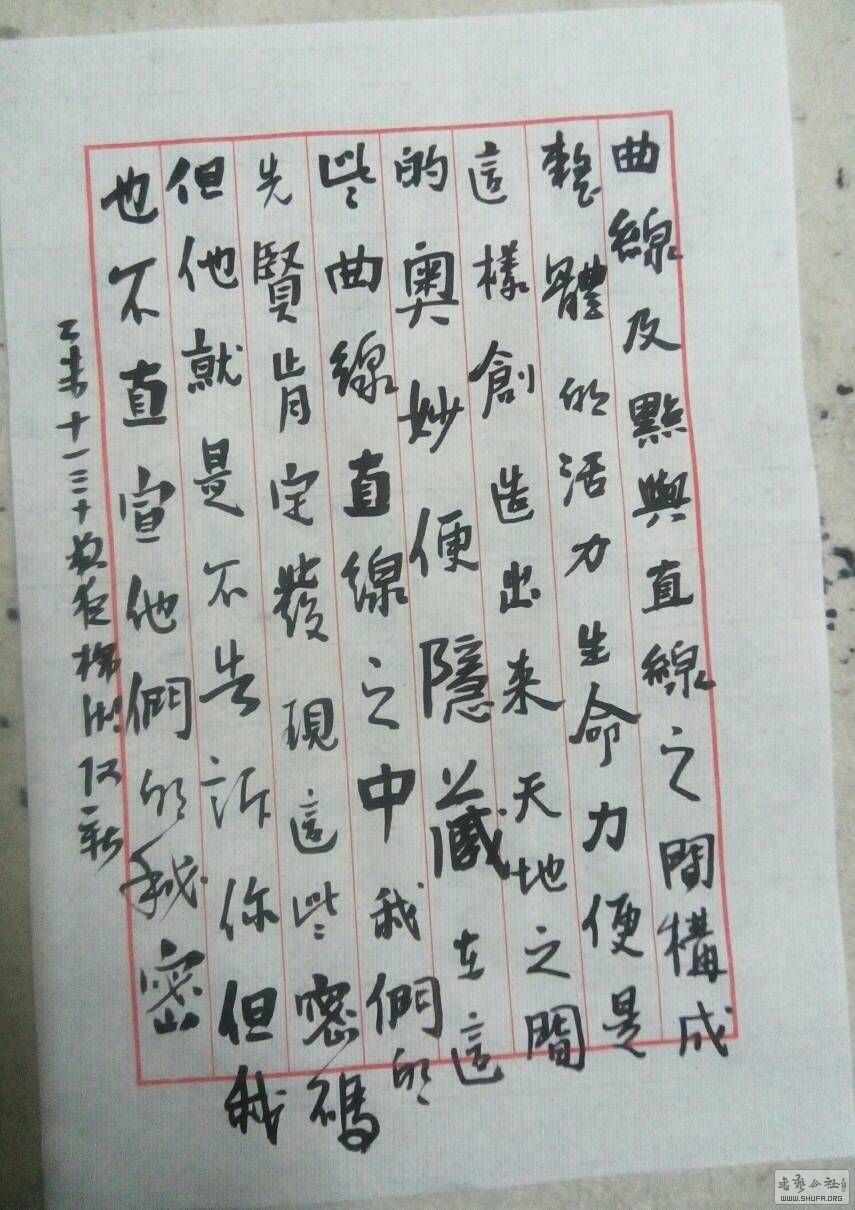 曲線及點與直線之間構成
整體的活力生命力便是
這樣創造出来天地之間
的奥妙便隱藏在這
些曲線直線之中我們的
先賢肯定發現這些密碼
但他就是不告訴你但我
也不直宣他們的秘密
乙未十一三十
WWW.SHUFA.ORG